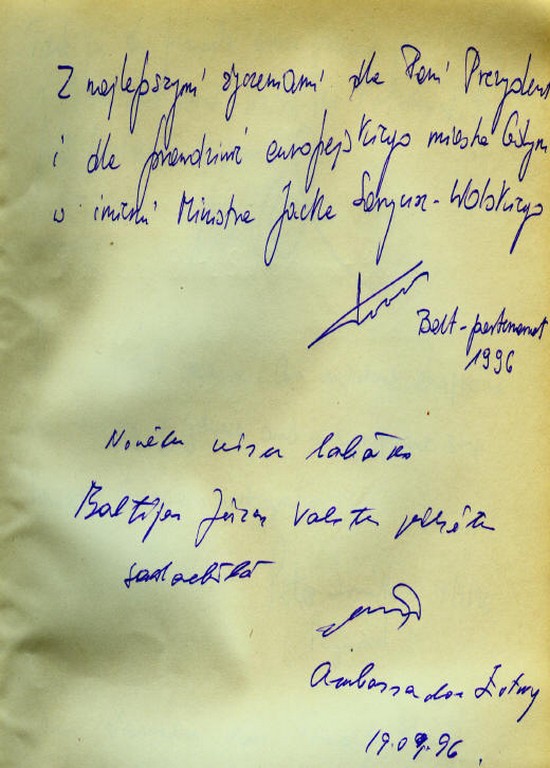 Z najlepszymi życzeniami dla Pani Prezydent
i dla prawdziwie europejskiego miasta Gdyni
w imieniu Ministra Jacka Saryusz-Wolskiego
Balt-partenariat
1996
Novēlu visu labāko
Baltijas Jūras Valstu pilsētu
sadarbībā
Ambassador Łotwy
19.09.96.